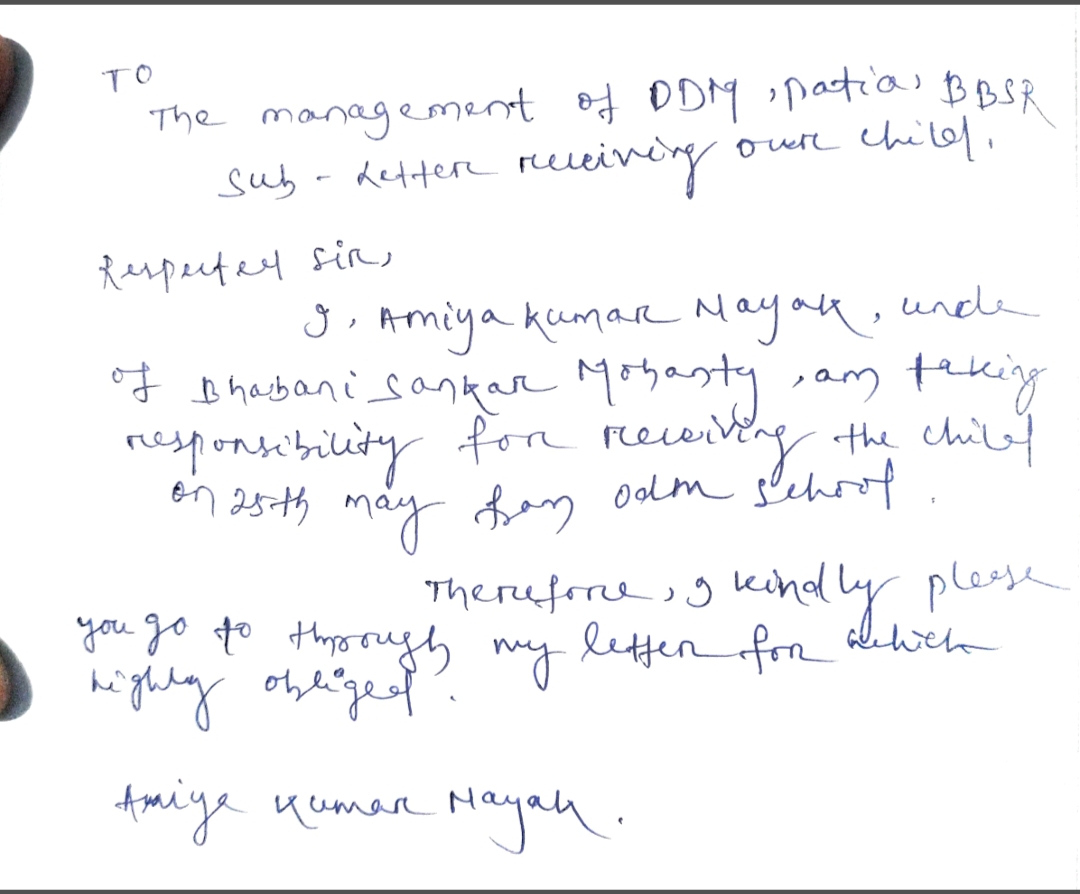 TO
The management of ODM, patia, BBSR
Sub - Letter receiving our child.
Respected sir,
I, Amiya kumar Nayak, uncle
of Bhabani Sankar Mohanty, am taking
responsibility for receiving the child
on 25th may from odm school.
Therefore, I kindly please
you go to through my letter for which
highly obliged.
Amiya Kumar Nayak.